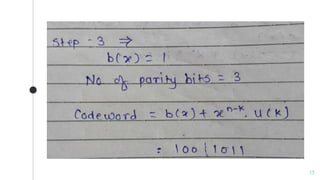 Step - 3 ⇒
b(x) = 1
No. of parity bits = 3
Codeword = b(x) + x^{n-k}. u(k)
= 100 | 1011